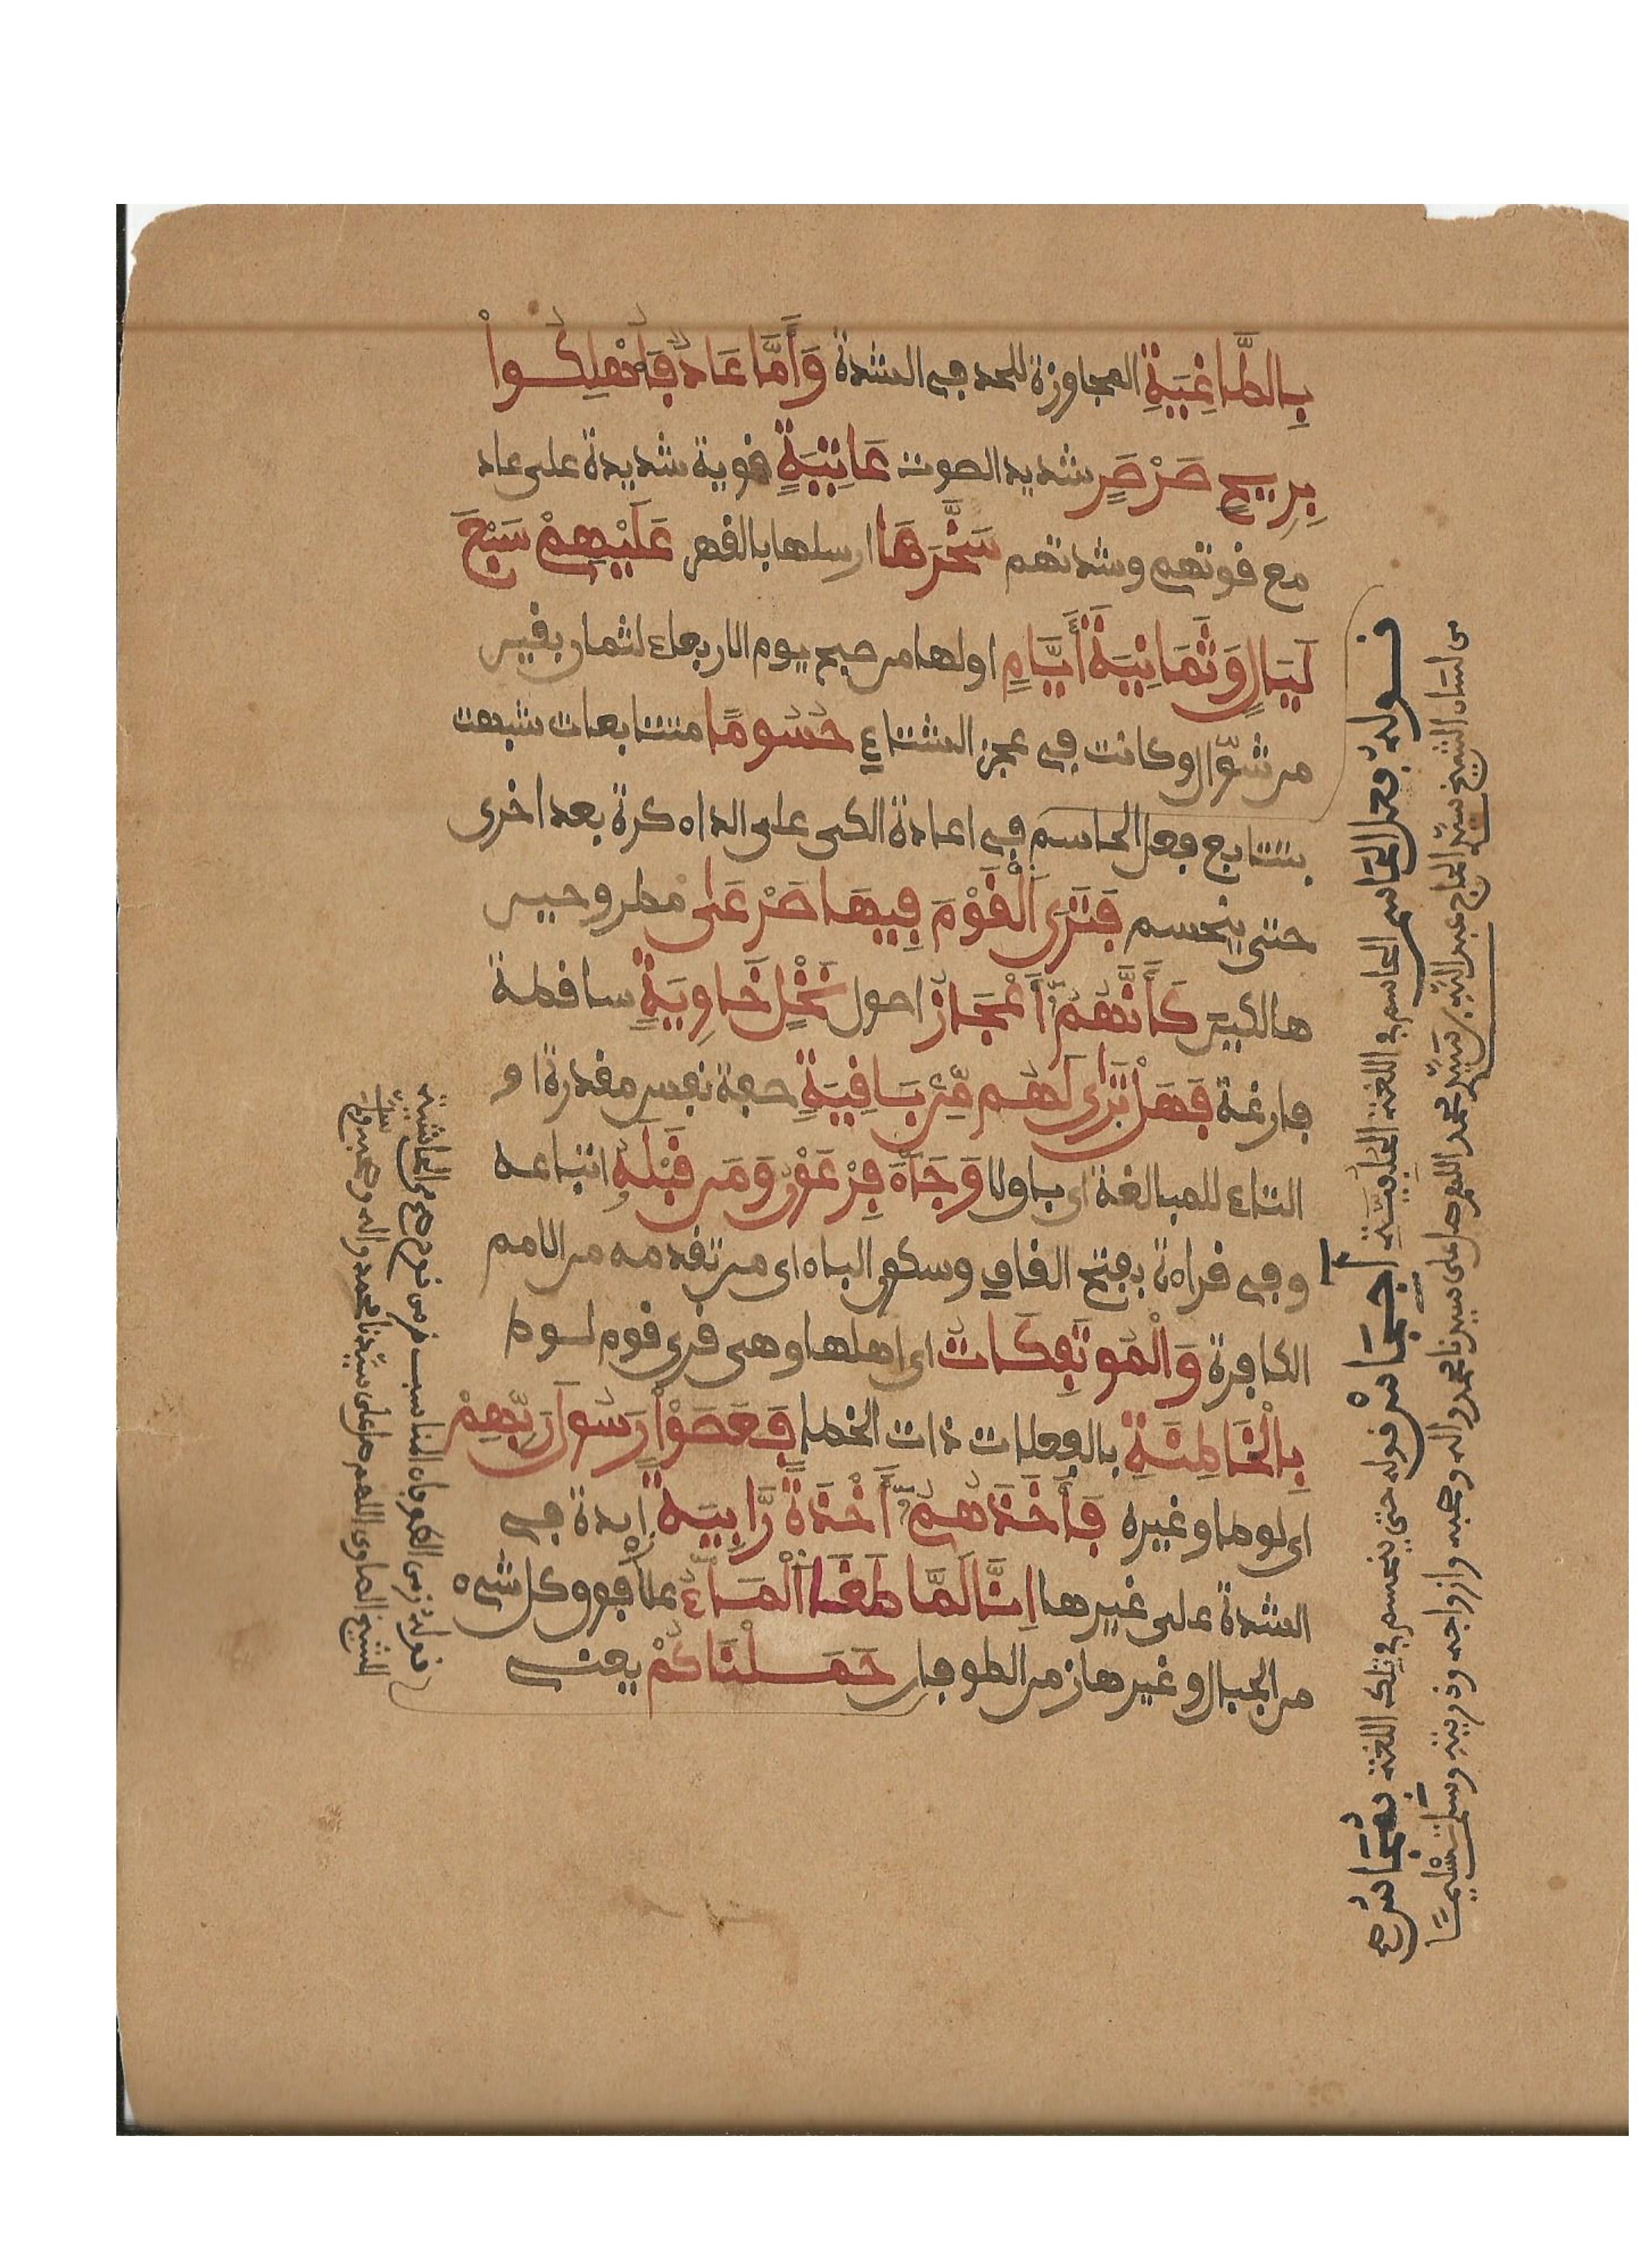 بِالطَّاغِيَةِ المجاوزة للحد في الشدة وَأَمَّا عَادٌ فَأُهْلِكُواْ
بِرِيحٍ صَرْصَرٍ شديد الصوت عَاتِيَةٍ قوية شديدة على عاد
مع قوتهم وشدتهم سَخَّرَهَا ارسلها بالقهر عَلَيْهِمْ سَبْعَ
لَيَالٍ وَثَمَانِيَةَ أَيَّامٍ اولها من صبح يوم الاربعاء لثمان بقين
من شوّال وكانت في عجز الشتاء حُسُومًا متتابعات شبهت
بتتابع فعل الحاسم في اعادة الكى على الداء كرة بعد اخرى
حتى ينحسم فَتَرَى الْقَوْمَ فِيهَا صَرْعَى مطروحين
هالكين كَأَنَّهُمُ أَعْجَازُ اصول نَخْلٍ خَاوِيَةٍ ساقطة
فارغة فَهَلْ تَرَى لَهُم مِّنْ بَاقِيَةٍ صفة نفس مقدرة او
التاء للمبالغة اى باق لا وَجَآءَ فِرْعَوْنُ وَمَن قِبَلَهُ اتباعه
وفي قراءة بفتح القاف وسكون الباء اى من تقدمه من الامم
الكافرة وَالْمُوتَفِكَاتُ اى اهلها وهى قرى قوم لوط
بِالْخَاطِئَةِ بالفعلات ذات الخطا فَعَصَوْاْ رَسُولَ رَبِّهِمْ
اى لوطا وغيره فَأَخَذَهُمُ أَخْذَةً رَّابِيَةً زايدة في
الشدة على غيرها اِنَّا لَمَّا طَغَا الْمَآءُ علا فوق كل شىء
من الجبال وغيرها زمن الطوفان حَمَلْنَاكُمْ يعنى
قوله فعل الحاسم الحاسم في اللغة
قوله حتى ينحسم في تلك اللغة
من لسان الشيخ سيد الحاج عبد الله بن سيد محمد اللهم صل على سيدنا محمد واله وصحبه وازواجه وذريته وسلم تسليما
قوله زمن الطوفان المناسب من قوم
الشيخ الصاوى اللهم صل على سيدنا محمد واله وصحبه وسلم